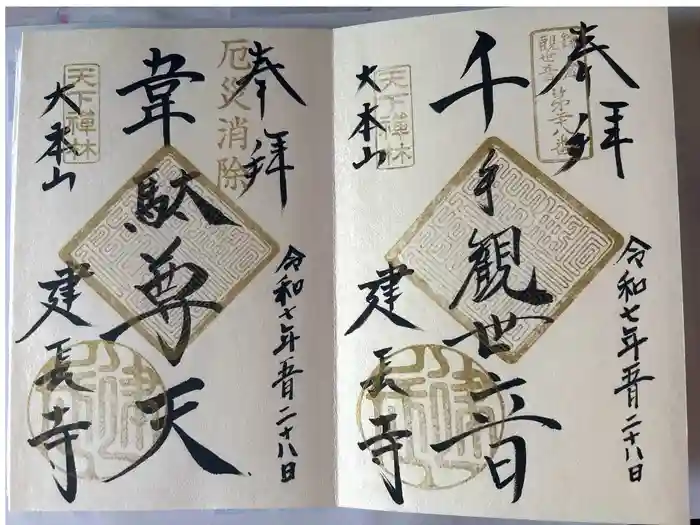 奉拝
観世音
第廿八番
令和七年五月二十八日
千手観世音
天下禪林
大本山
建長寺
奉拝
厄災消除
令和七年五月二十八日
韋駄尊天
天下禪林
大本山
建長寺